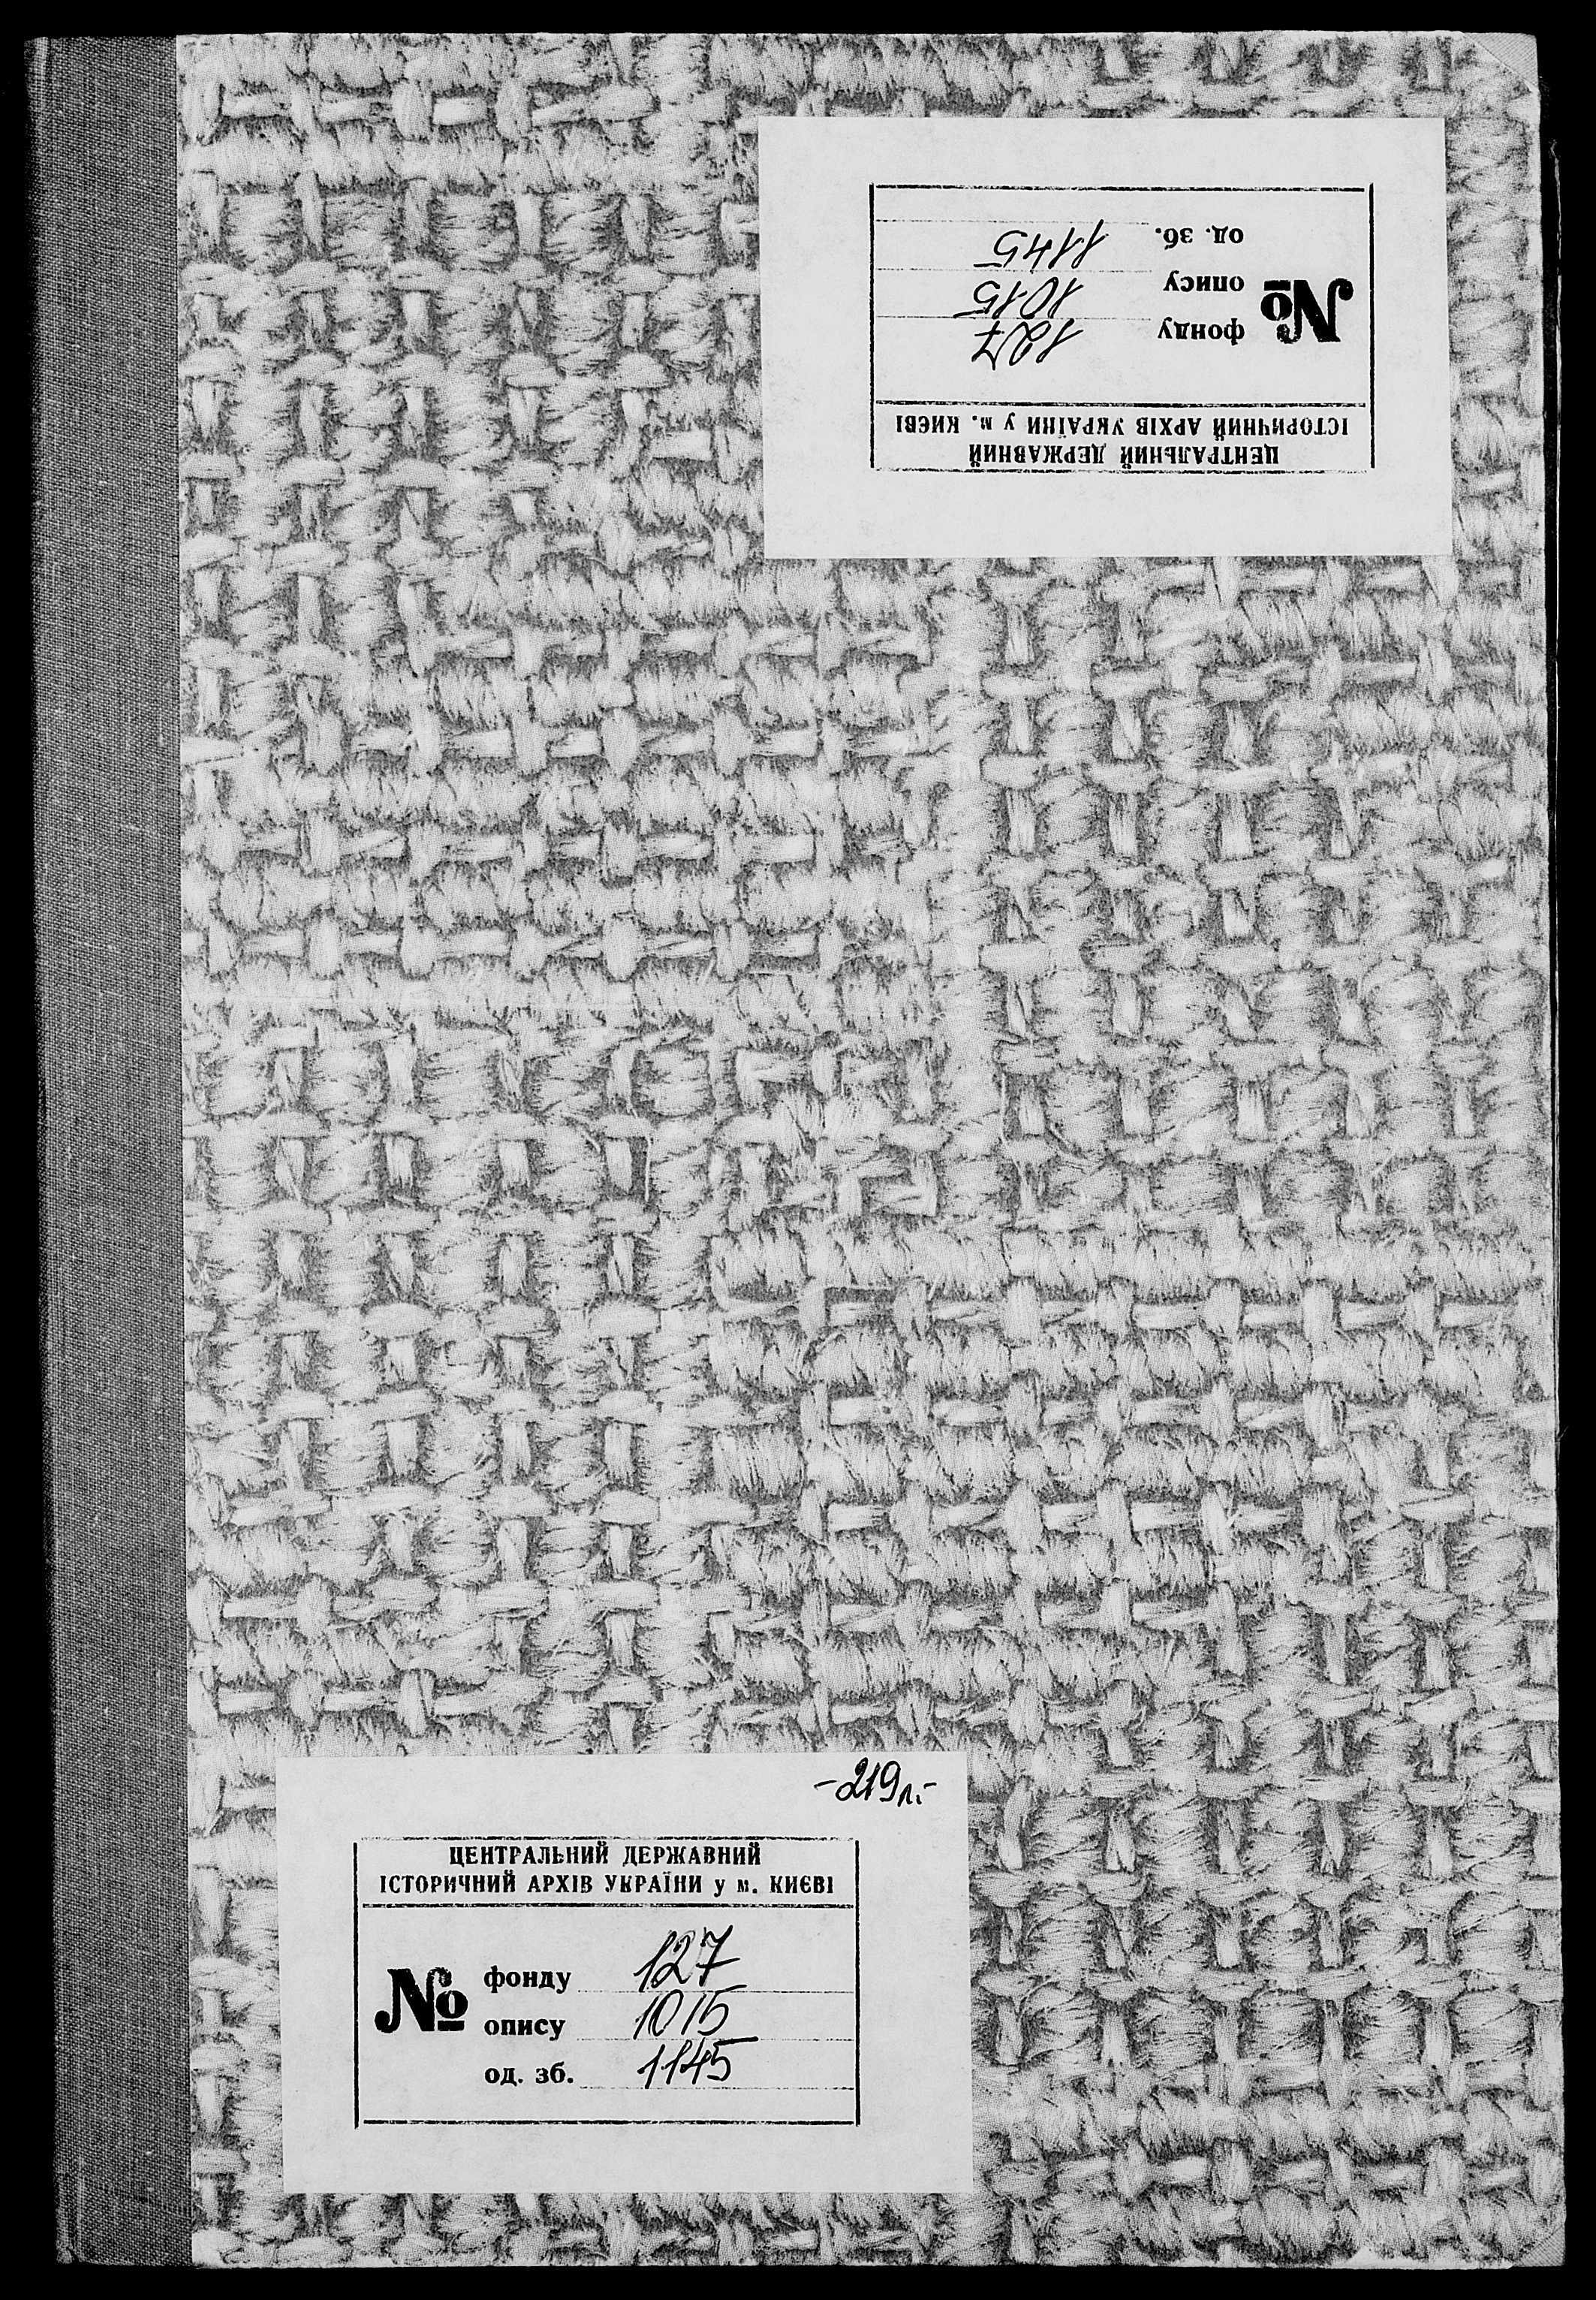 ЦЕНТРАЛЬНИЙ ДЕРЖАВНИЙ
ІСТОРИЧНИЙ АРХІВ УКРАЇНИ у м. КИЄВІ
№
фонду 127
опису 1015
од. зб. 1145
-219л.-
ЦЕНТРАЛЬНИЙ ДЕРЖАВНИЙ
ІСТОРИЧНИЙ АРХІВ УКРАЇНИ у м. КИЄВІ
№
фонду 127
опису 1015
од. зб. 1145